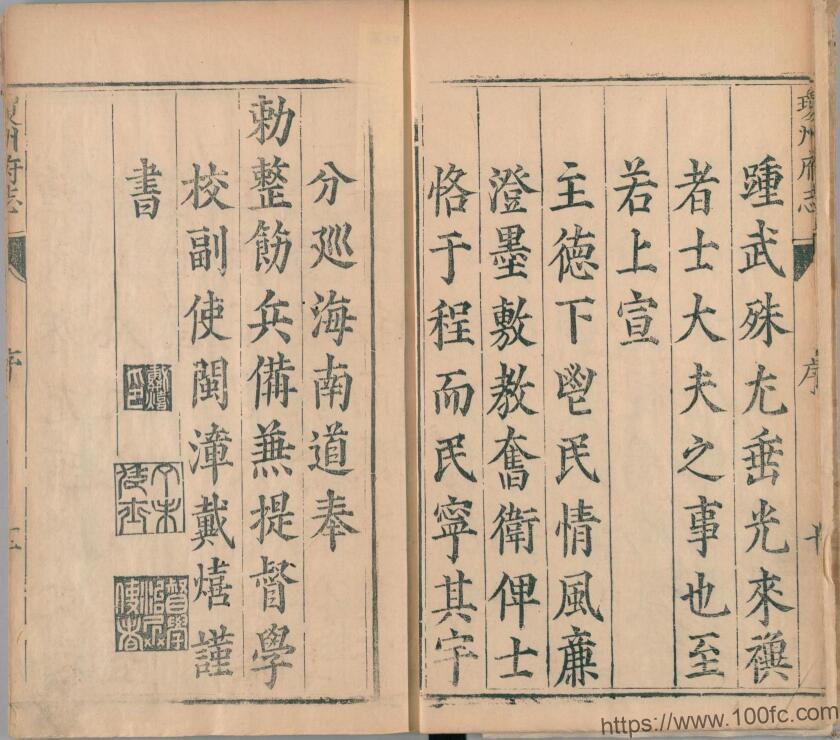 瓊州府志
序
踵武殊尤垂光來禩
者士大夫之事也至
若上宣
主德下鬯民情風廉
澄墨敷教奮衛俾士
恪于程而民寧其宇
分廵海南道奉
勅整飭兵備蕪提督學
校副使閩漳戴熺謹
書
戴熺
督學
州府志
序
https://www.100fc.com